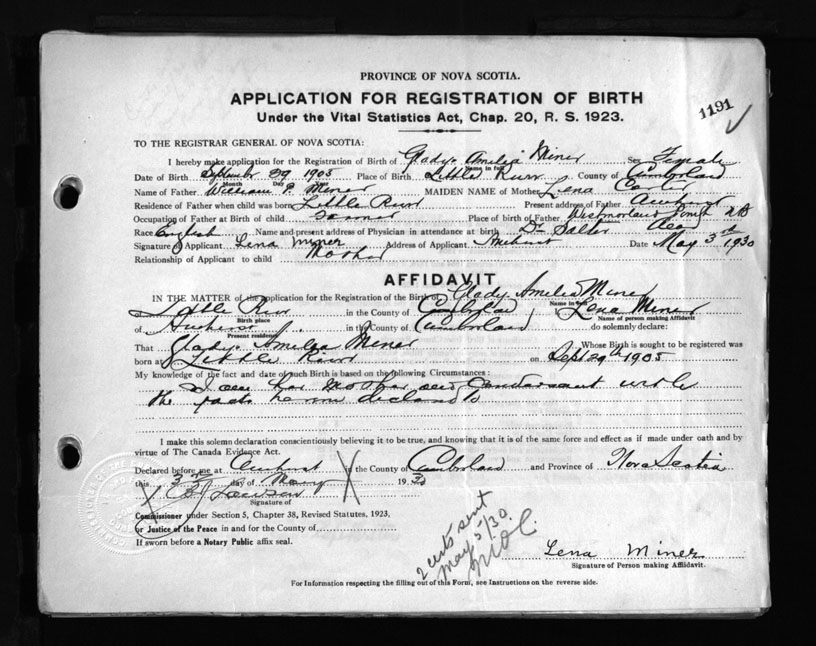 PROVINCE OF NOVA SCOTIA.
APPLICATION FOR REGISTRATION OF BIRTH
Under the Vital Statistics Act, Chap. 20, R. S. 1923.
1191
TO THE REGISTRAR GENERAL OF NOVA SCOTIA:
I hereby make application for the Registration of Birth of Gladys Amelia Miner Sex Female
Name in full
Date of Birth September 29 1905 Place of Birth Little River County of Cumberland
Month Day
Name of Father William P. Miner MAIDEN NAME of Mother Lena Carter
Residence of Father when child was born Little River Present address of Father Amherst
Occupation of Father at Birth of child Farmer Place of birth of Father Westmorland NB
Race English Name and present address of Physician in attendance at birth Dr
Signature of Applicant Lena Miner Address of Applicant Amherst Date May 3rd 1930
Relationship of Applicant to child Mother
AFFIDAVIT
IN THE MATTER of the application for the Registration of the Birth of Gladys Amelia Miner
Name in full
Little River in the County of Cumberland I Lena Miner
Birth place Name of person making Affidavit
of Amherst in the County of Cumberland do solemnly declare:
Present residence
That Gladys Amelia Miner Whose Birth is sought to be registered was
born at Little River on Sept 29th 1905
My knowledge of the fact and date of such Birth is based on the following Circumstances:
I am her Mother and conversant with
the facts herein declared to
I make this solemn declaration conscientiously believing it to be true, and knowing that it is of the same force and effect as if made under oath and by
virtue of The Canada Evidence Act.
Declared before me at Amherst in the County of Cumberland and Province of Nova Scotia
this 3rd day of May 1930
Signature of
Commissioner under Section 5, Chapter 38, Revised Statutes, 1923,
or Justice of the Peace in and for the County of
If sworn before a Notary Public affix seal.
2 certs sent
May 5/30
Lena Miner
Signature of Person making Affidavit.
For Information respecting the filling out of this Form, see Instructions on the reverse side.